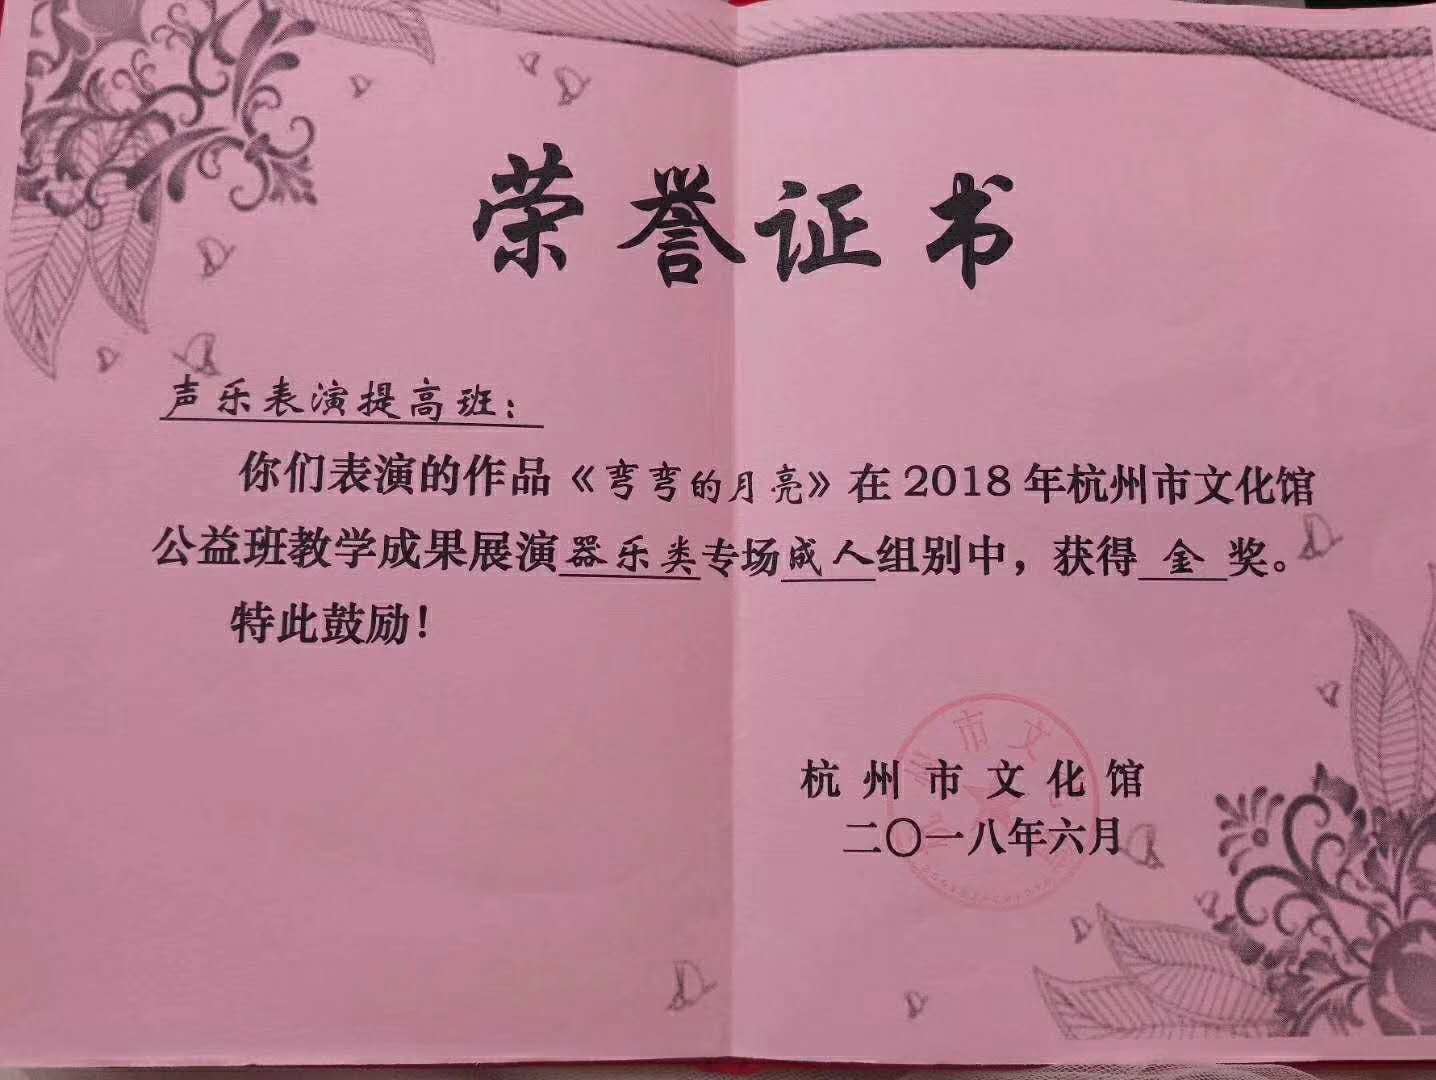 荣誉证书
声乐表演提高班：
你们表演的作品《弯弯的月亮》在2018年杭州市文化馆
公益班教学成果展演器乐类专场成人组别中，获得金奖。
特此鼓励！
杭州市文化馆
二〇一八年六月